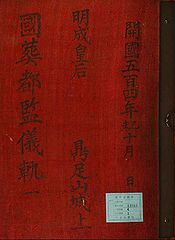 開國五百四年乙未十月 日
明成皇后
鼎足山城上
國葬都監儀軌一